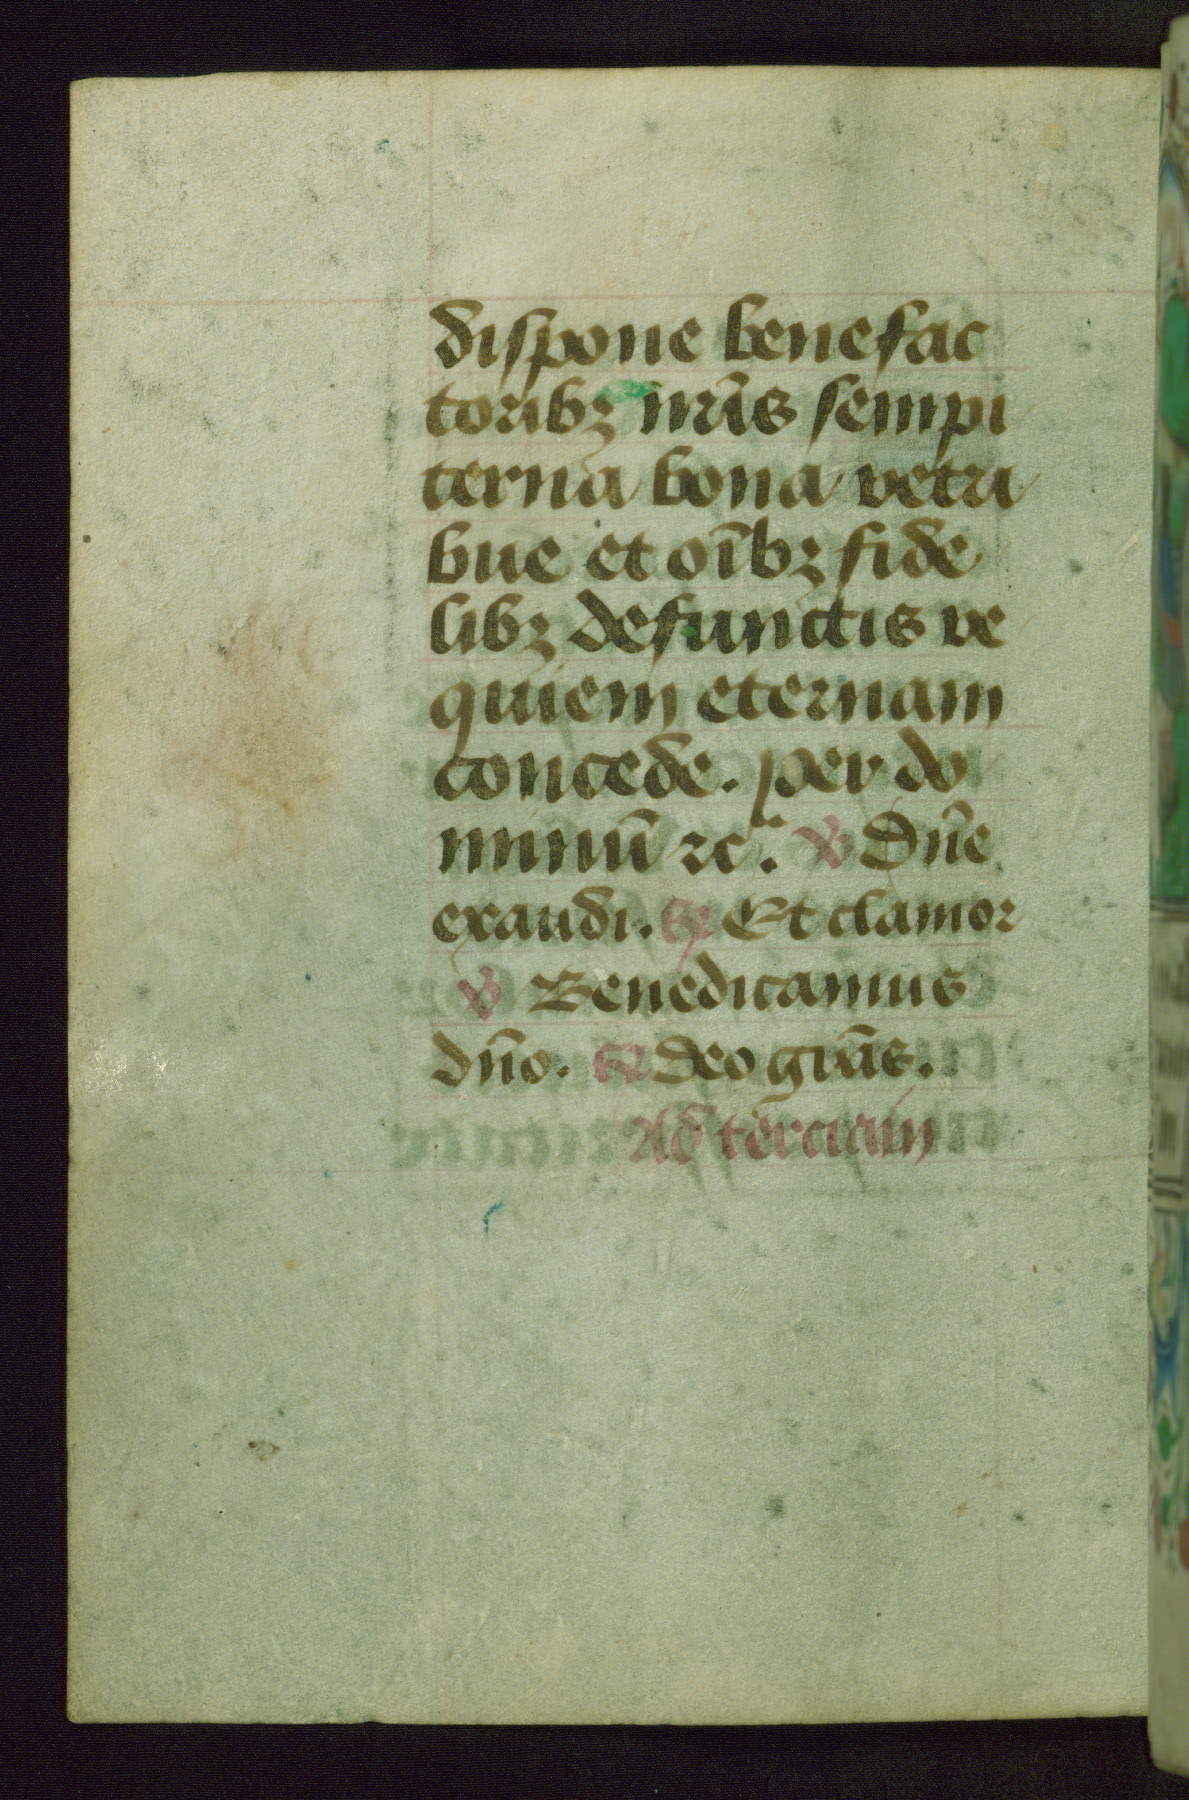 dispone benefac
toribꝫ nr̃is sempi
terna bona retri
bue et oĩbꝫ fide
libꝫ defunctis re
quiem eternam
concede. per do
minũ ⁊c̃. ℣ Dñe
exaudi. ℟ Et clamor
℣ Benedicamus
dño. ℟ Deo gr̃as.
Ad terciam